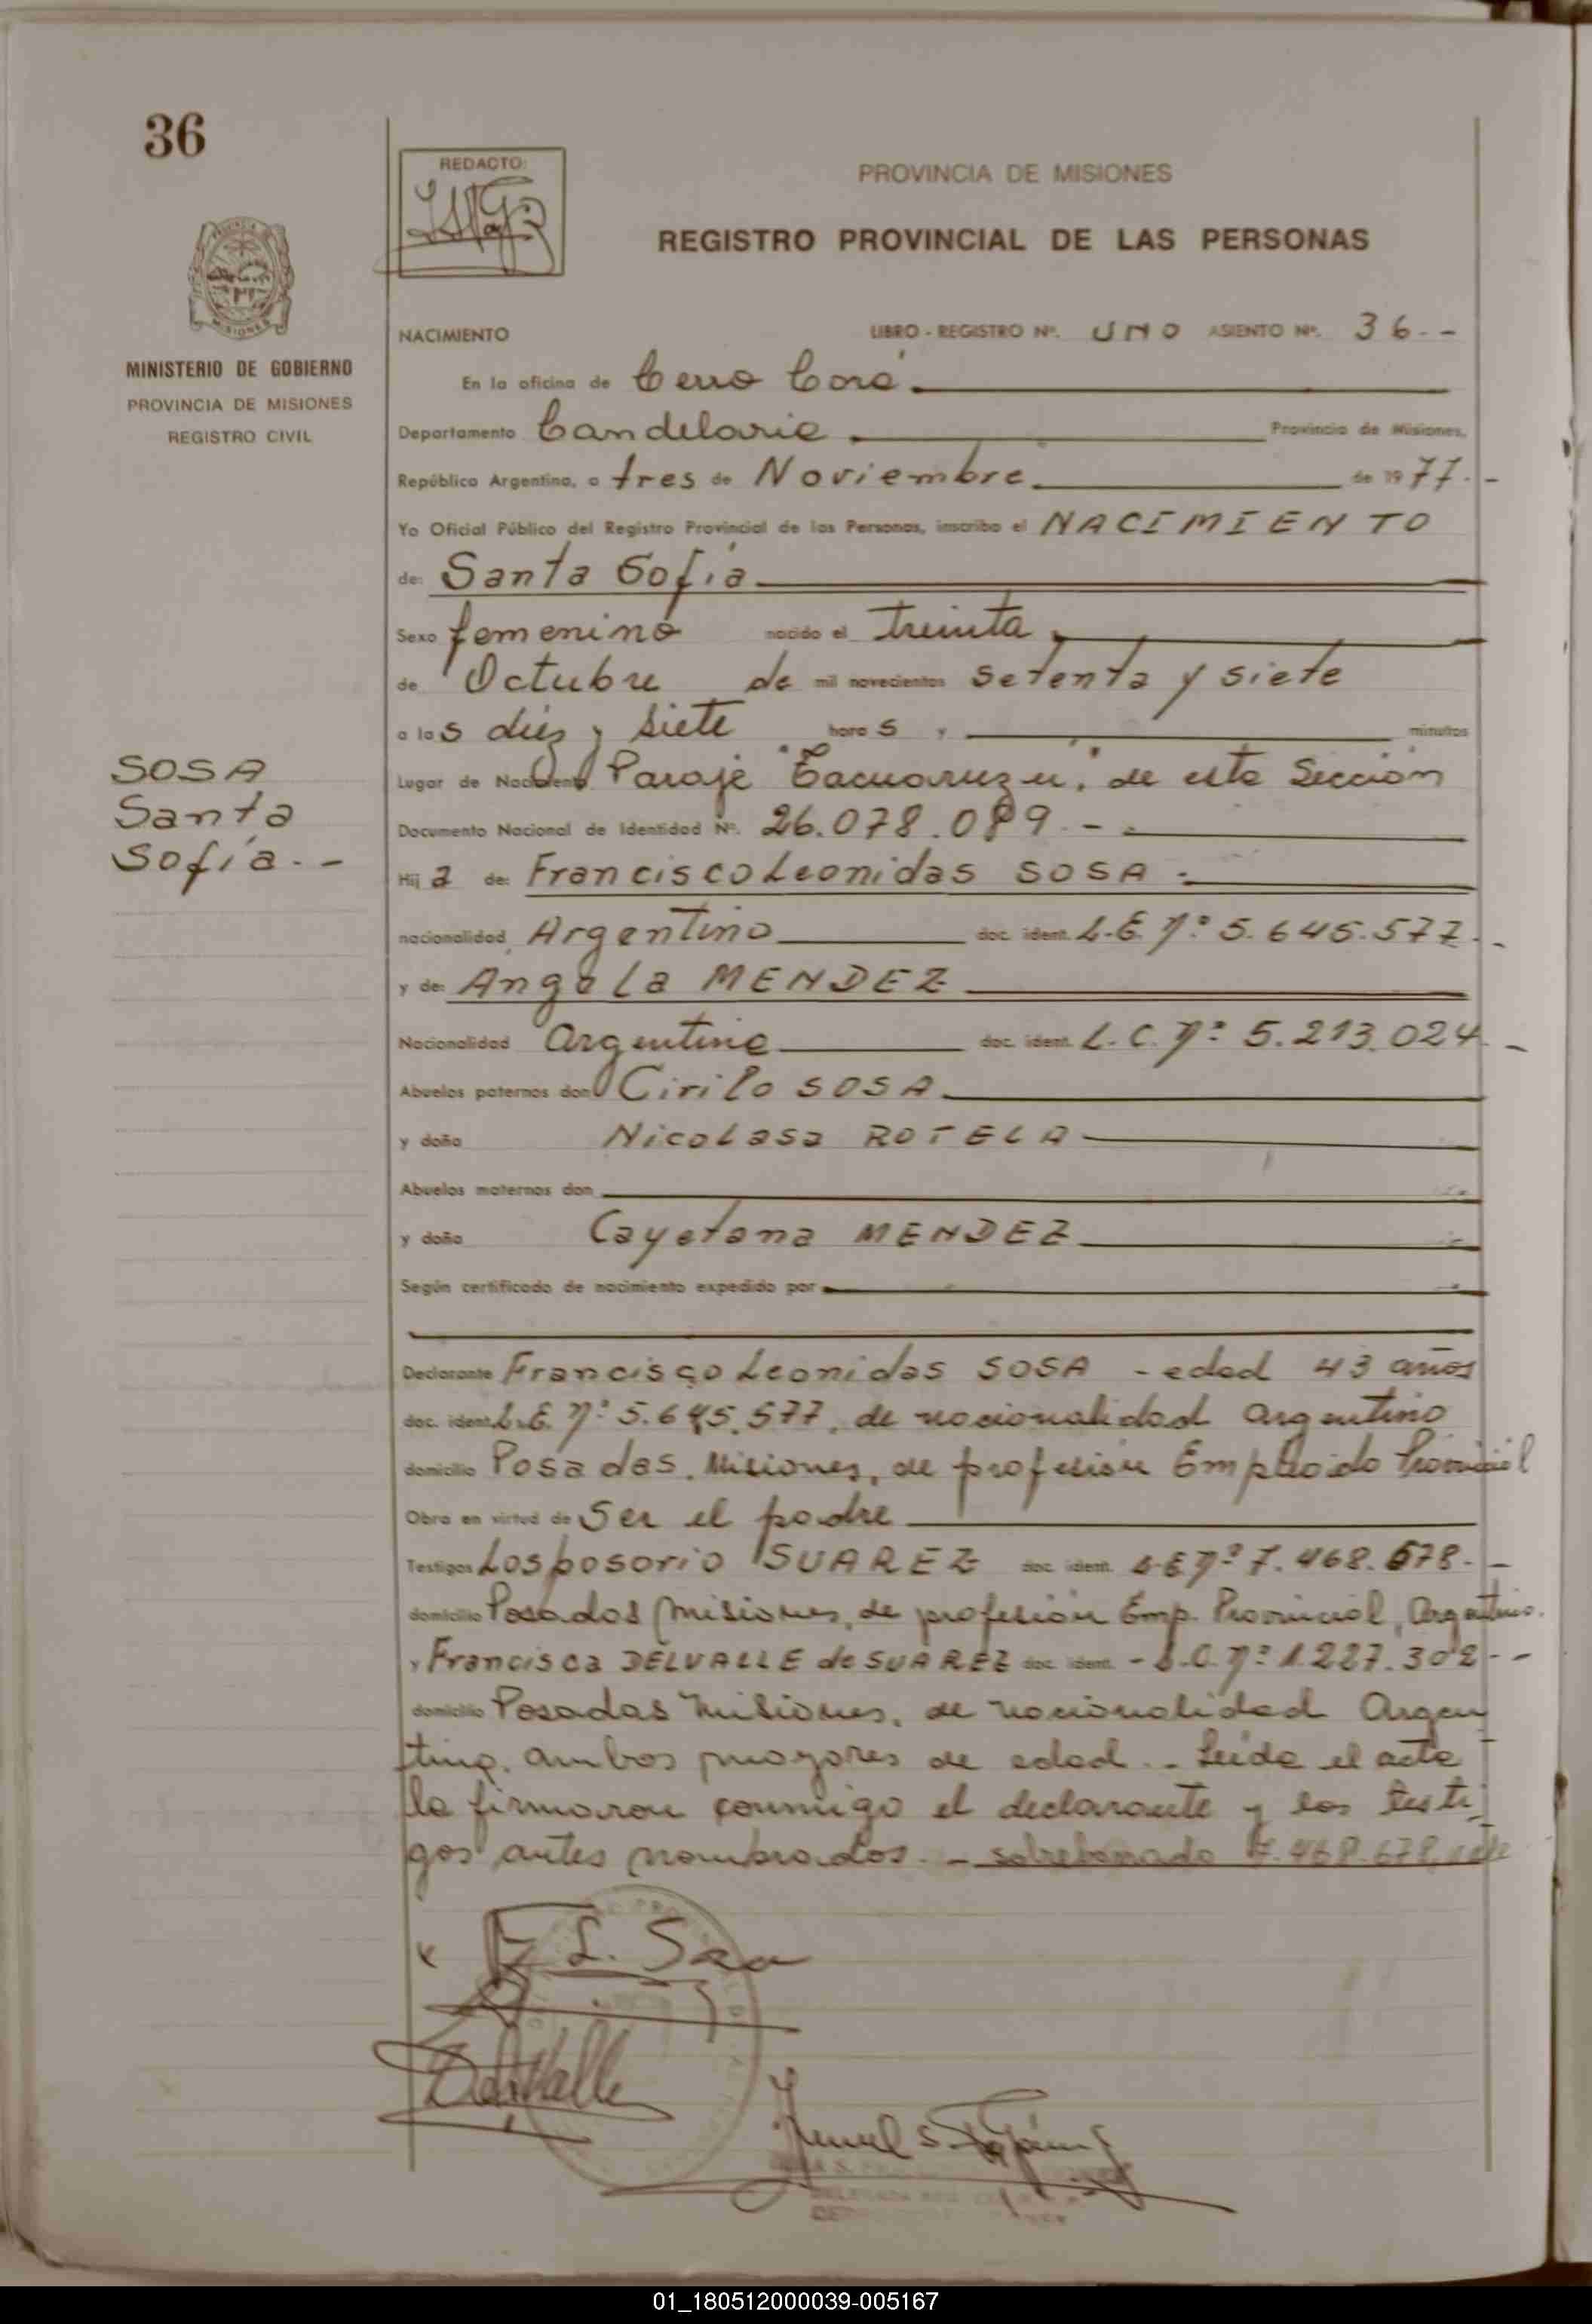 36
REDACTO:
PROVINCIA DE MISIONES
REGISTRO PROVINCIAL DE LAS PERSONAS
MISIONES
MINISTERIO DE GOBIERNO
PROVINCIA DE MISIONES
REGISTRO CIVIL
NACIMIENTO LIBRO - REGISTRO Nº. UNO ASIENTO Nº. 36.--
En la oficina de Cerro Corá
Departamento Candelaria Provincia de Misiones,
República Argentina, a tres de Noviembre de 1977.-
Yo Oficial Público del Registro Provincial de las Personas, inscribo el NACIMIENTO
de: Santa Sofía
Sexo femenino nacido el treinta
de Octubre de mil novecientos setenta y siete
a las diez y siete horas y minutos
Lugar de Nacimiento Paraje "Tacuaruzu", de esta Sección
Documento Nacional de Identidad Nº. 26.078.089.-
SOSA
Santa
Sofía.-
Hija de: Francisco Leonidas SOSA.
nacionalidad Argentino doc. ident. L.E. nº 5.645.577.-
y de: Angela MENDEZ
Nacionalidad Argentina doc. ident. L.C. nº 5.213.024.-
Abuelos paternos don Cirilo SOSA
y doña Nicolasa ROTELA
Abuelos maternos don
y doña Cayetana MENDEZ
Según certificado de nacimiento expedido por
Declarante Francisco Leonidas SOSA - edad 43 años
doc. ident. L.E. nº 5.645.577, de nacionalidad argentino
domicilio Posadas, Misiones, de profesión Empleado Provincial
Obra en virtud de Ser el padre
Testigos Losposorio SUAREZ doc. ident. L.E. nº 7.468.678.-
domicilio Posadas Misiones, de profesión Emp. Provincial, Argentino.
y Francisca DELVALLE de SUAREZ doc. ident. - L.C. nº 1.227.302--
domicilio Posadas Misiones, de nacionalidad Argen
tina, ambos mayores de edad.- Leída el acta
la firmaron conmigo el declarante y los testi
gos antes nombrados.- sobreborrado 7.468.678 vale
F. L. Sosa
Delvalle
01_180512000039-005167